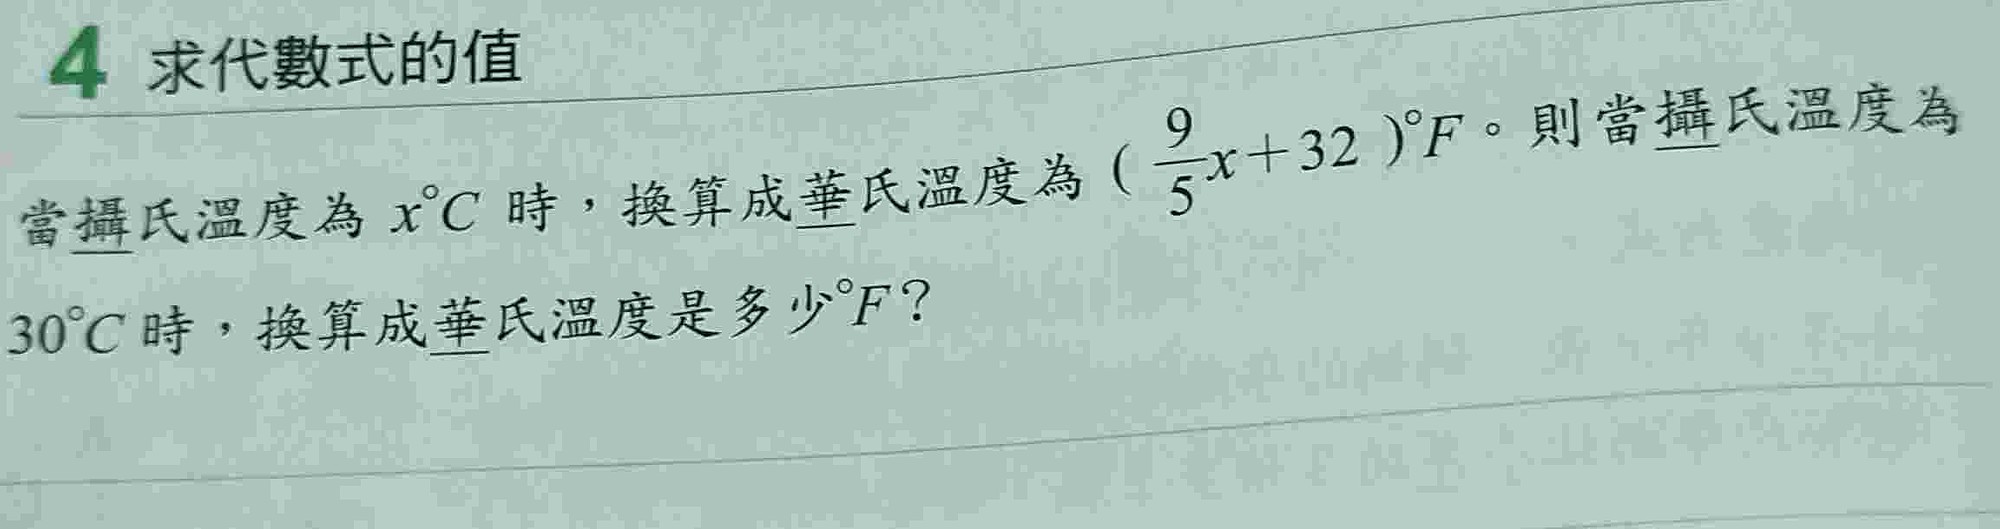 4 求代數式的值
當攝氏溫度為 x°C 時，換算成華氏溫度為 ( 9/5 x+32 )°F。則當攝氏溫度為
30°C 時，換算成華氏溫度是多少°F？